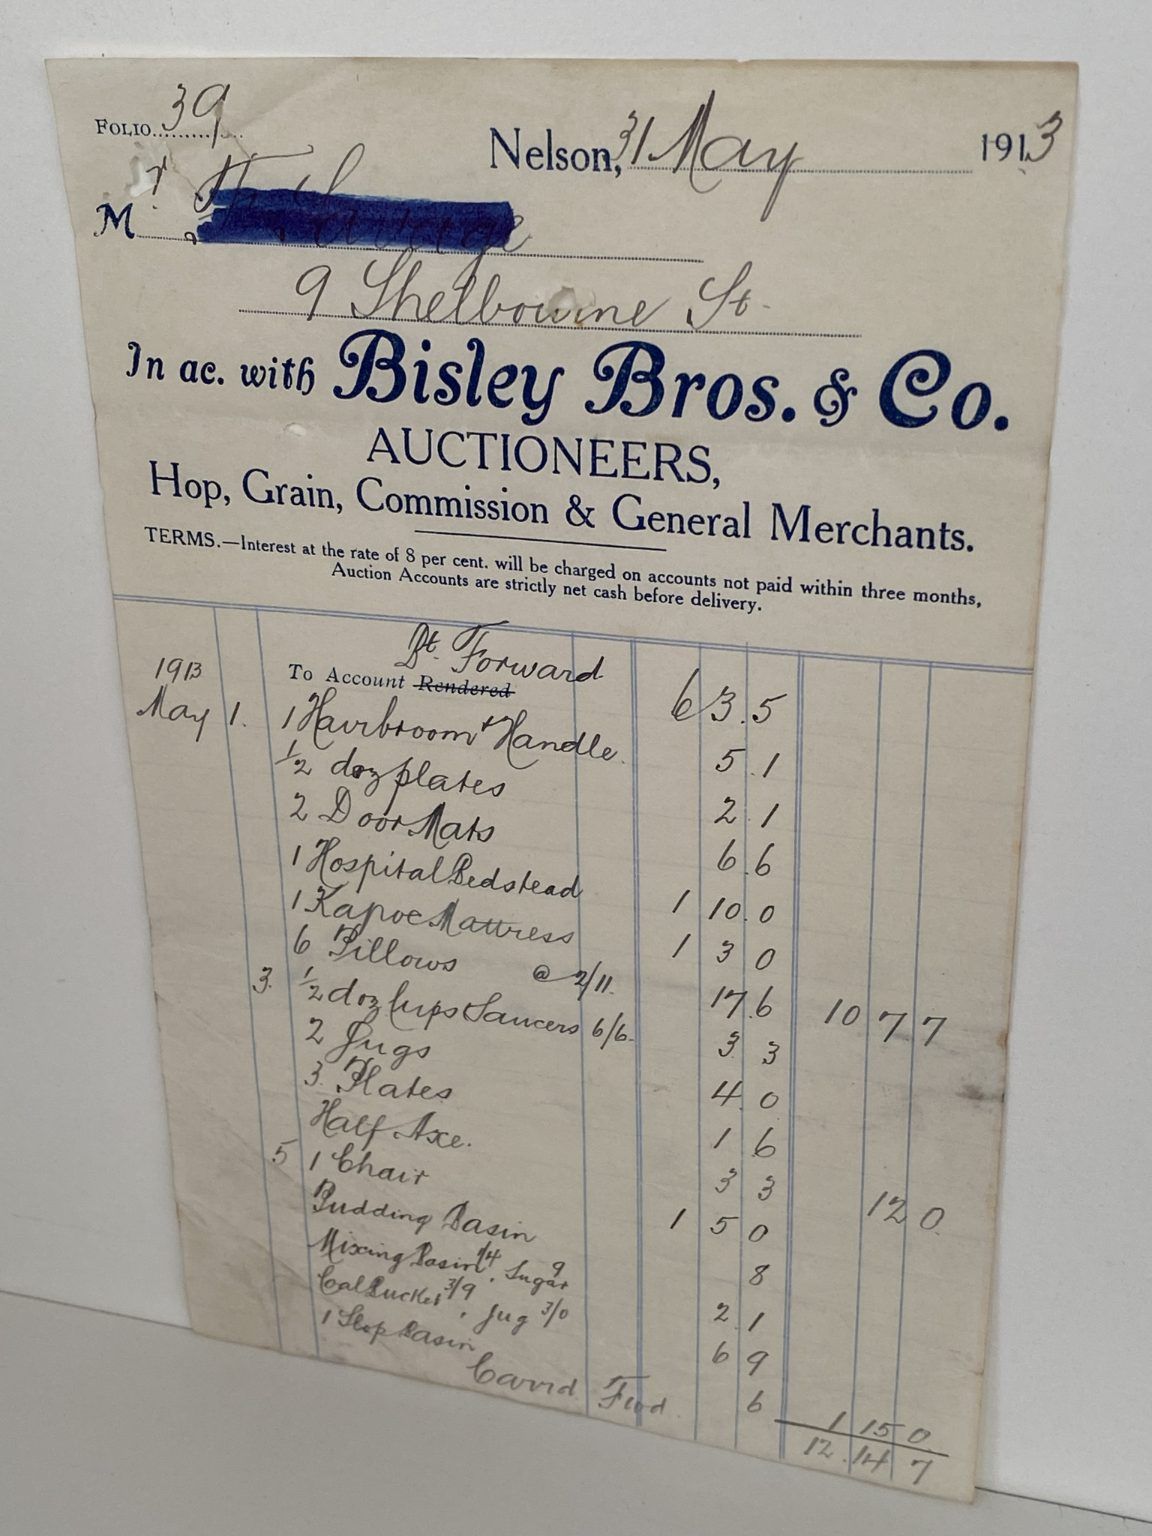 FOLIO 39
Nelson, 31 May 1913
Mr
9 Shelbourne St.
In ac. with Bisley Bros. & Co.
AUCTIONEERS,
Hop, Grain, Commission & General Merchants.
TERMS.—Interest at the rate of 8 per cent. will be charged on accounts not paid within three months,
Auction Accounts are strictly net cash before delivery.
Bt. Forward
1913 To Account Rendered 6 3. 5
May 1. 1 Hairbroom & Handle 5. 1
1/2 doz plates 2. 1
2 Door Mats 6. 6
1 Hospital Bedstead 1 10. 0
1 Kapoc Mattress 1 3 0
6 Pillows @ 2/11. 17. 6 10 7 7
3. 1/2 doz Cups Saucers 6/6. 3 3
2 Jugs 4. 0
3. Plates 1 6
Half Axe. 3 3 12 0
5 1 Chair 1 5 0
Pudding Basin 8
Mixing Basin 1/4. Sugar 9 2. 1
Gal Bucket 3/9, Jug 3/0 6 9
1 Slop Basin 6 1 15 0
Carrd Fwd 12. 14 7